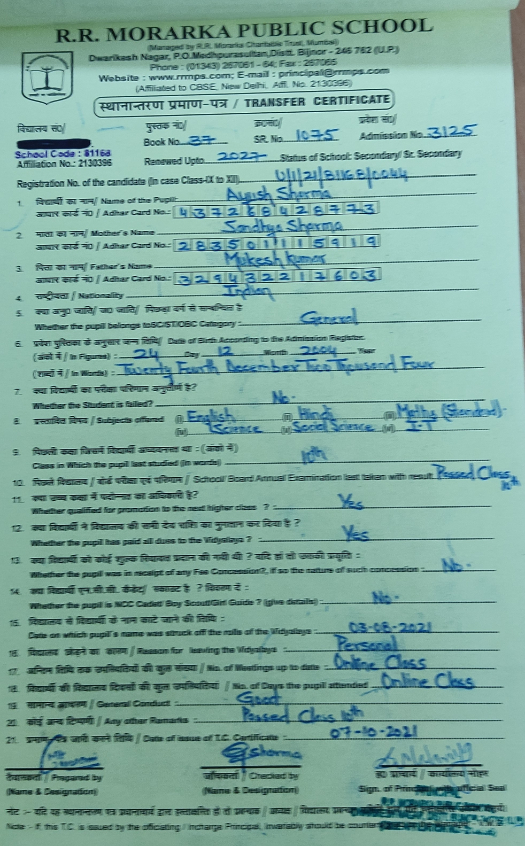 R.R. MORARKA PUBLIC SCHOOL
(Managed by R.R. Morarka Charitable Trust, Mumbai)
Dwarikesh Nagar, P.O.Medhpurasultan,Distt. Bijnor - 246 762 (U.P.)
Phone : (01343) 267061 - 64; Fax : 267065
Website : www.rrmps.com; E-mail : principal@rrmps.com
(Affiliated to CBSE, New Delhi, Affl. No. 2130396)
स्थानान्तरण प्रमाण-पत्र / TRANSFER CERTIFICATE
विद्यालय सं०/ पुस्तक नं०/ क्र०सं०/ प्रवेश सं०/
Book No. 37 SR. No. 1075 Admission No. 3125
School Code : 81168
Affiliation No.: 2130396 Renewed Upto 2027 Status of School: Secondary/ Sr. Secondary
Registration No. of the candidate (in case Class-IX to XII) U/1/21/81168/0044
1. विद्यार्थी का नाम/ Name of the Pupil: Ayush Sharma
आधार कार्ड नं० / Adhar Card No.: 437268428773
2. माता का नाम/ Mother's Name Sandhya Sharma
आधार कार्ड नं० / Adhar Card No.: 283501115919
3. पिता का नाम/ Father's Name Mukesh Kumar
आधार कार्ड नं० / Adhar Card No.: 329432217603
4. राष्ट्रीयता / Nationality Indian
5. क्या अनु० जाति/ ज०जाति/ पिछड़ा वर्ग से सम्बन्धित है
Whether the pupil belongs to SC/ST/OBC Category : General
6. प्रवेश पुस्तिका के अनुसार जन्म तिथि/ Date of Birth According to the Admission Register.
(अंकों में / In Figures) : 24 Day 12 Month 2004 Year
(शब्दों में / In Words) : Twenty Fourth December Two Thousand Four
7. क्या विद्यार्थी का परीक्षा परिणाम अनुत्तीर्ण है?
Whether the Student is failed? No.
8. प्रस्तावित विषय / Subjects offered (i) English (ii) Hindi (iii) Maths (Standard).
(iv) Science (v) Social Science (vi) I.T
9. पिछली कक्षा जिसमें विद्यार्थी अध्ययनरत था : (अंकों में)
Class in Which the pupil last studied (in words) 10th
10. पिछले विद्यालय / बोर्ड परीक्षा एवं परिणाम / School/ Board Annual Examination last taken with result Passed Class 10th
11. क्या उच्च कक्षा में पदोन्नत का अधिकारी है?
Whether qualified for promotion to the next higher class ? : Yes
12. क्या विद्यार्थी ने विद्यालय की सभी देय राशि का भुगतान कर दिया है ?
Whether the pupil has paid all dues to the Vidyalaya ? : Yes
13. क्या विद्यार्थी को कोई शुल्क रियायत प्रदान की गयी थी ? यदि हां तो उसकी प्रवृति :
Whether the pupil was in receipt of any Fee Concession?, If so the nature of such concession : No.
14. क्या विद्यार्थी एन.सी.सी. कैडेट/ स्काउट है ? विवरण दें :
Whether the pupil is NCC Cadet/ Boy Scout/Girl Guide ? (give details) : No.
15. विद्यालय से विद्यार्थी के नाम काटे जाने की तिथि :
Date on which pupil's name was struck off the rolls of the Vidyalaya : 03-08-2021
16. विद्यालय छोड़ने का कारण / Reason for leaving the Vidyalaya : Personal
17. अन्तिम तिथि तक उपस्थितियों की कुल संख्या / No. of Meetings up to date : Online Class
18. विद्यार्थी की विद्यालय दिवसों की कुल उपस्थितियां / No. of Days the pupil attended Online Class
19. सामान्य आचरण / General Conduct : Good
20. कोई अन्य टिप्पणी / Any other Remarks : Passed Class 10th
21. प्रमाण पत्र जारी करने तिथि / Date of issue of T.C. Certificate : 07-10-2021
Sharma
तैयारकर्ता / Prepared by जाँचकर्ता / Checked by ह० प्राचार्य / कार्यालय मोहर
(Name & Designation) (Name & Designation) Sign. of Principal with official Seal
नोट :- यदि यह स्थानान्तरण पत्र प्रधानाचार्य द्वारा हस्ताक्षरित हो तो
Note :- If this T.C. is issued by the officiating / Incharge Principal, invariably should be